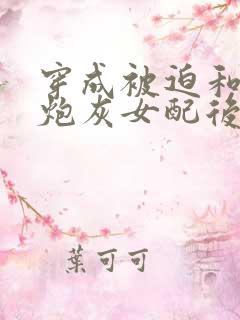 穿成被迫和
炮灰女配後
葉可可